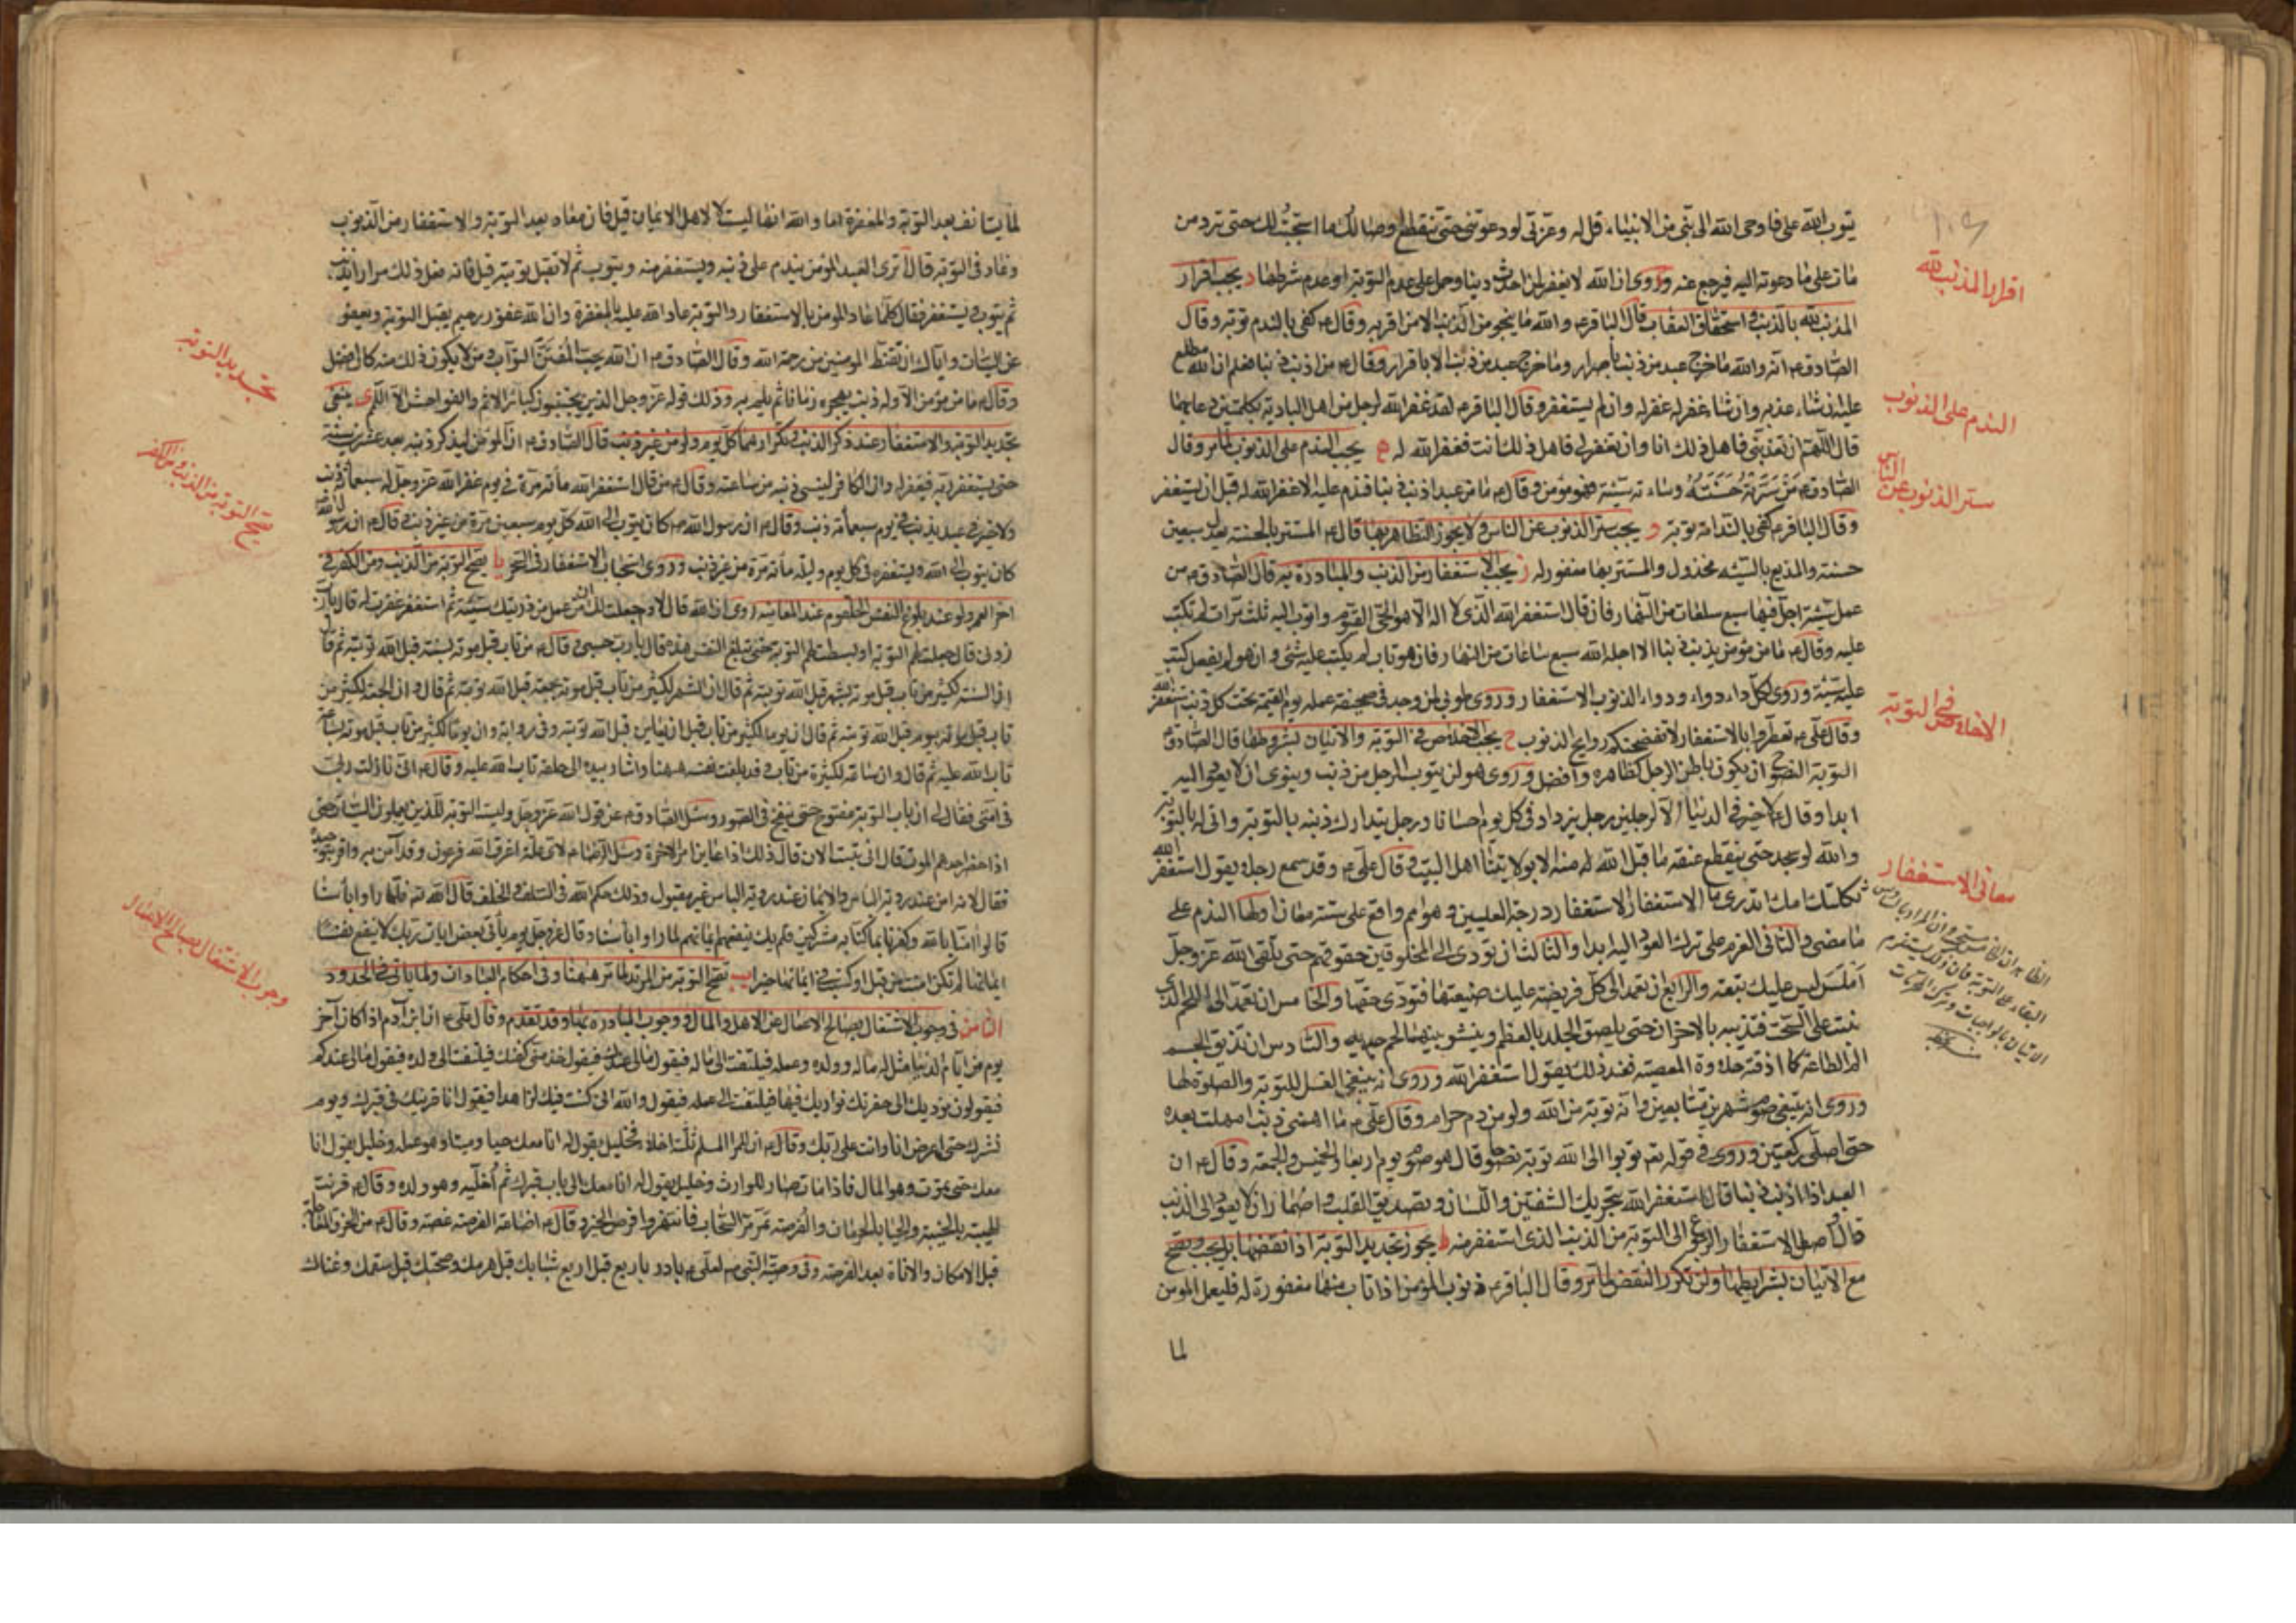 يتوب الله على فاوحى الله الى نبي من الانبياء قل له وعزتي لو دعوتني حتى تنقطع اوصالك ما استجبت لك حتى ترد من
مات على ما دعوته اليه فيرجع عنه وروى ان الله لا يغفر لمن احدث دينا وحمل على عدم التوبة او عدم شرطها د يجب اقرار
المذنب لله بالذنب و استحقاق العقاب قال الباقر ع والله ما ينجو من الذنب الا من اقر به وقال ع كفى بالندم توبة وقال
الصادق ع انه والله ما خرج عبد من ذنب باصرار وما خرج عبد من ذنب الا باقرار وقال ع من اذنب ذنبا فعلم ان الله مطلع
عليه ان شاء عذبه وان شاء غفر له غفر له وان لم يستغفر وقال الباقر ع لقد غفر الله لرجل من اهل البادية بكلمتين دعا بهما
قال اللهم ان تعذبني فاهل ذلك انا وان تغفر لي فاهل ذلك انت فغفر الله له ه يجب الندم على الذنوب لما مر وقال
الصادق ع من سرته حسنته وساءته سيئته فهو مؤمن وقال ع ما من عبد اذنب ذنبا فندم عليه الا غفر الله له قبل ان يستغفر
وقال الباقر ع كفى بالندامة توبة و يجب ستر الذنوب عن الناس ولا يجوز التظاهر بها قال ع المستتر بالحسنة يعدل سبعين
حسنة والمذيع بالسيئة مخذول والمستتر بها مغفور له ز يجب الاستغفار من الذنب والمبادرة به قال الصادق ع من
عمل سيئة اجل فيها سبع ساعات من النهار فان قال استغفر الله الذي لا اله الا هو الحي القيوم واتوب اليه ثلث مرات لم تكتب
عليه وقال ع ما من مؤمن يذنب ذنبا الا اجله الله سبع ساعات من النهار فان هو تاب لم يكتب عليه شئ وان هو لم يفعل كتب
عليه سيئة وروى لكل داء دواء ودواء الذنوب الاستغفار وروى طوبى لمن وجد في صحيفة عمله يوم القيمة تحت كل ذنب استغفر الله
وقال علي ع تعطروا بالاستغفار لا تفضحنكم روايح الذنوب ح يجب الاخلاص في التوبة والاتيان بشروطها قال الصادق ع
التوبة النصوح ان يكون باطن الرجل كظاهره وافضل وروى هو ان يتوب الرجل من ذنب وينوي ان لا يعود اليه
ابدا وقال ع لا خير في الدنيا الا لرجلين رجل يزداد في كل يوم احسانا ورجل يتدارك ذنبه بالتوبة وانى له بالتوبة
والله لو سجد حتى ينقطع عنقه ما قبل الله له منه الا بولايتنا اهل البيت وقال علي ع وقد سمع رجلا يقول استغفر الله
ثكلتك امك اتدري ما الاستغفار الاستغفار درجة العليين وهو اسم واقع على ستة معان اولها الندم على
ما مضى والثاني العزم على ترك العود اليه ابدا والثالث ان تودى الى المخلوقين حقوقهم حتى يلقى الله عز وجل
املس ليس عليك تبعة والرابع ان تعمد الى كل فريضة عليك ضيعتها فتودى حقها والخامس ان تعمد الى اللحم الذي
نبت على السحت فتذيبه بالاحزان حتى يلصق الجلد بالعظم وينشو بينهما لحم جديد والسادس ان تذيق الجسم
الم الطاعة كما اذقته حلاوة المعصية فعند ذلك يقول استغفر الله وروى انه ينبغي الغسل للتوبة والصلوة لها
وروى انه ينبغي صوم شهرين متتابعين وانه توبة من الله ولو من دم حرام وقال علي ع ما اهمني ذنب امهلت بعده
حتى اصلي ركعتين وروى في قوله تعم توبوا الى الله توبة نصوحا قال هو صوم يوم اربعا والخميس والجمعة وقال ع ان
العبد اذا اذنب ذنبا قال استغفر الله بتحريك الشفتين واللسان وتصديق القلب واضمار ان لا يعود الى الذنب
قال اصل الاستغفار الرجوع الى التوبة من الذنب الذي استغفر منه ط يجوز تجديد التوبة اذا نقضها بل يجب ويصح
مع الاتيان بشرايطها ولن تكرر النقض لما مر وقال الباقر ع ذنوب المؤمن اذا تاب منها مغفورة له فليعمل المومن
لما
اقرار المذنب لله
الندم على الذنوب
ستر الذنوب عن الناس
الاخلاص في التوبة
معاني الاستغفار
لما يستانف بعد التوبة والمغفرة اما والله انها ليست الا لاهل الايمان قيل فان عاد بعد التوبة والاستغفار من الذنوب
وعاد في التوبة قال اترى العبد المؤمن يندم على ذنبه ويستغفر منه ويتوب ثم لا تقبل توبته قيل فانه فعل ذلك مرارا يذنب
ثم يتوب ويستغفر فقال كلما عاد المومن بالاستغفار والتوبة عاد الله عليه بالمغفرة وان الله غفور رحيم يقبل التوبة ويعفو
عن السيئات واياك ان تقنط المومنين من رحمة الله وقال الصادق ع ان الله يحب المفتن التواب ومن لا يكون ذلك منه كان افضل
وقال ع ما من مؤمن الا وله ذنب يهجره زمانا ثم يلم به وذلك قوله عز وجل الذين يجتنبون كبائر الاثم والفواحش الا اللمم ى ينبغي
تجديد التوبة والاستغفار عند ذكر الذنب وتكرارهما كل يوم ولو من غير ذنب قال الصادق ع ان المؤمن ليذكر ذنبه بعد عشرين سنة
حتى يستغفر ربه فيغفر له وان الكافر لينسى ذنبه من ساعته وقال ع من قال استغفر الله مأة مرة في يوم غفر الله عز وجل له سبعمأة ذنب
ولا خير في عبد يذنب في يوم سبعمأة ذنب وقال ع ان رسول الله ص كان يتوب الى الله كل يوم سبعين مرة من غير ذنب وقال ع ان رسول الله
كان يتوب الى الله ويستغفره في كل يوم وليلة مأة مرة من غير ذنب وروى استحباب الاستغفار في السحر يا يصح التوبة من الذنب ومن الكفر في
اخر العمر ولو عند بلوغ النفس الحلقوم عند المعاينة روى ان الله قال لادم جعلت لك ان من عمل من ذريتك سيئة ثم استغفر غفرت له قال يا رب
زدني قال جعلت لهم التوبة او بسطت لهم التوبة حتى تبلغ النفس هذه قال يا رب حسبي وقال ع من تاب قبل موته بسنة قبل الله توبته ثم قال
ان السنة لكثير من تاب قبل موته بشهر قبل الله توبته ثم قال ان الشهر لكثير من تاب قبل موته بجمعة قبل الله توبته ثم قال وان الجمعة لكثير من
تاب قبل موته بيوم قبل الله توبته ثم قال ان يوما لكثير من تاب قبل ان يعاين قبل الله توبته وفي رواية وان يوما لكثير من تاب قبل موته بساعة
تاب الله عليه ثم قال وان ساعة لكثيرة من تاب وقد بلغت نفسه ههنا واشار بيده الى حلقه تاب الله عليه وقال ع اني نازلت ربي
في امتي فقال لي ان باب التوبة مفتوح حتى ينفخ في الصور وسئل الصادق ع عن قول الله عز وجل وليست التوبة للذين يعملون السيئات حتى
اذا حضر احدهم الموت قال اني تبت الان قال ذلك اذا عاين امر الاخرة وسئل الرضا ع لاي علة اغرق الله فرعون وقد آمن به واقر بتوحيده
فقال لانه امن عند روية الباس والايمان عند روية الباس غير مقبول وذلك حكم الله في السلف والخلف قال الله تع فلما راوا بأسنا
قالوا امنا بالله وكفرنا بما كنا به مشركين فلم يك ينفعهم ايمانهم لما راوا بأسنا وقال عز وجل يوم يأتي بعض ايات ربك لا ينفع نفسا
ايمانها لم تكن امنت من قبل او كسبت في ايمانها خيرا يب تصح التوبة من المرتد لما مر ههنا وفي احكام العبادات ولما ياتي في الحدود
الثامن في وجوب الاشتغال بصالح الاعمال عن الاهل والمال و وجوب المبادرة بها وقد تقدم وقال علي ع ان ابن آدم اذا كان آخر
يوم من ايام الدنيا مثل له ماله وولده وعمله فيلتفت الى ماله فيقول مالي عندك فيقول خذ مني كفنك فيلتفت الى ولده فيقول مالي عندكم
فيقولون نوديك الى حفرتك نواريك فيها فيلتفت الى عمله فيقول والله اني كنت فيك لزاهدا فيقول انا قرينك في قبرك ويوم
نشرك حتى اعرض انا وانت على ربك وقال ع ان للمرا المسلم ثلثة اخلاء فخليل يقول له انا معك حيا وميتا وهو عمله وخليل يقول انا
معك حتى تموت وهو المال فاذا مات صار للوارث وخليل يقول له انا معك الى باب قبرك ثم اخليه وهو ولده وقال ع قرنت
الهيبة بالخيبة والحيا بالحرمان والفرصة تمر مر السحاب فانتهزوا فرص الخير وقال ع اضاعة الفرصة غصة وقال ع من الخرق المعاجلة
قبل الامكان والاناة بعد الفرصة وفي وصية النبي ص لعلي ع بادر باربع قبل اربع شبابك قبل هرمك وصحتك قبل سقمك وغناك
تجديد التوبة
وجوب الاشتغال بصالح الاعمال